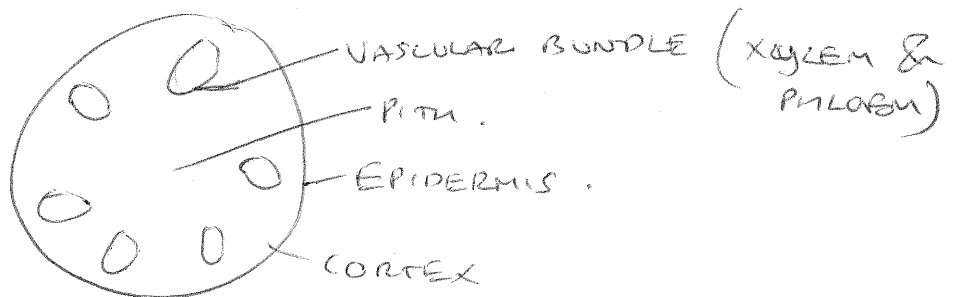 VASCULAR BUNDLE (XYLEM &
PHLOEM)
PITH.
EPIDERMIS.
CORTEX